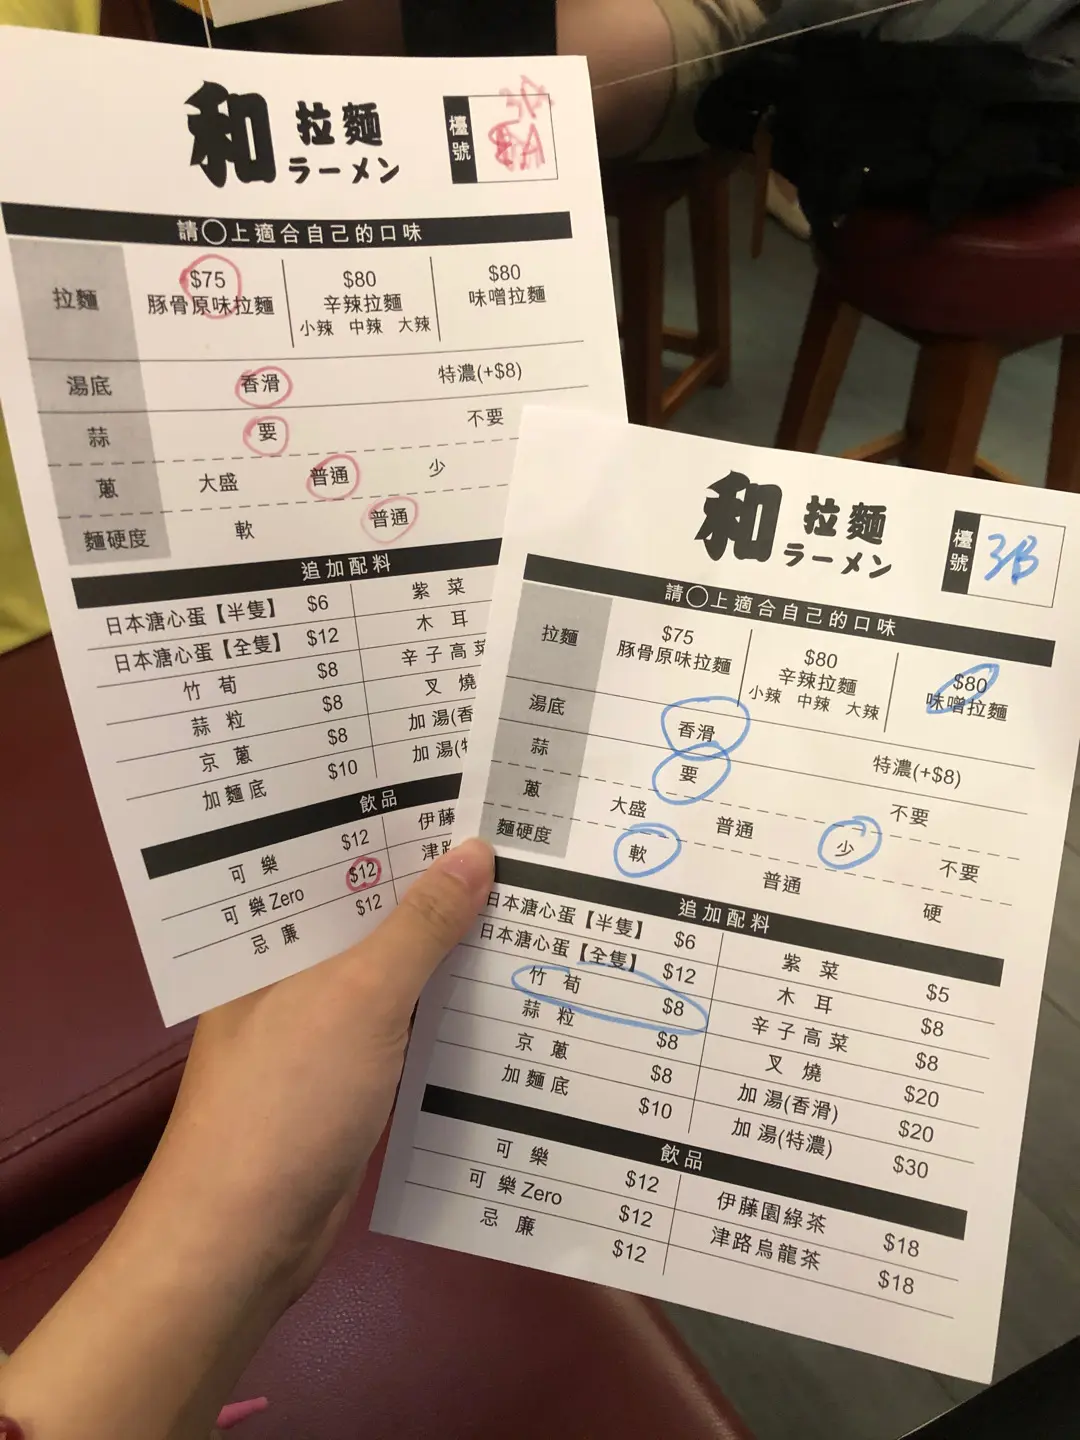 和 拉麵
ラーメン
檯號
請◯上適合自己的口味
拉麵
$75 $80 $80
豚骨原味拉麵 辛辣拉麵 味噌拉麵
小辣 中辣 大辣
湯底 香滑 特濃(+$8)
蒜 要 不要
蔥 大盛 普通 少
麵硬度 軟 普通
追加配料
日本溏心蛋【半隻】 $6 紫菜
日本溏心蛋【全隻】 $12 木耳
竹荀 $8 辛子高菜
蒜粒 $8 叉燒
京蔥 $8 加湯(香
加麵底 $10 加湯(
飲品
可樂 $12 伊藤
可樂Zero $12 津路
忌廉 $12
和 拉麵
ラーメン
檯號 3B
請◯上適合自己的口味
拉麵
$75 $80 $80
豚骨原味拉麵 辛辣拉麵 味噌拉麵
小辣 中辣 大辣
湯底 香滑 特濃(+$8)
蒜 要 不要
蔥 大盛 普通 少 不要
麵硬度 軟 普通 硬
追加配料
日本溏心蛋【半隻】 $6 紫菜 $5
日本溏心蛋【全隻】 $12 木耳 $8
竹荀 $8 辛子高菜 $8
蒜粒 $8 叉燒 $20
京蔥 $8 加湯(香滑) $20
加麵底 $10 加湯(特濃) $30
飲品
可樂 $12 伊藤園綠茶 $18
可樂Zero $12 津路烏龍茶 $18
忌廉 $12